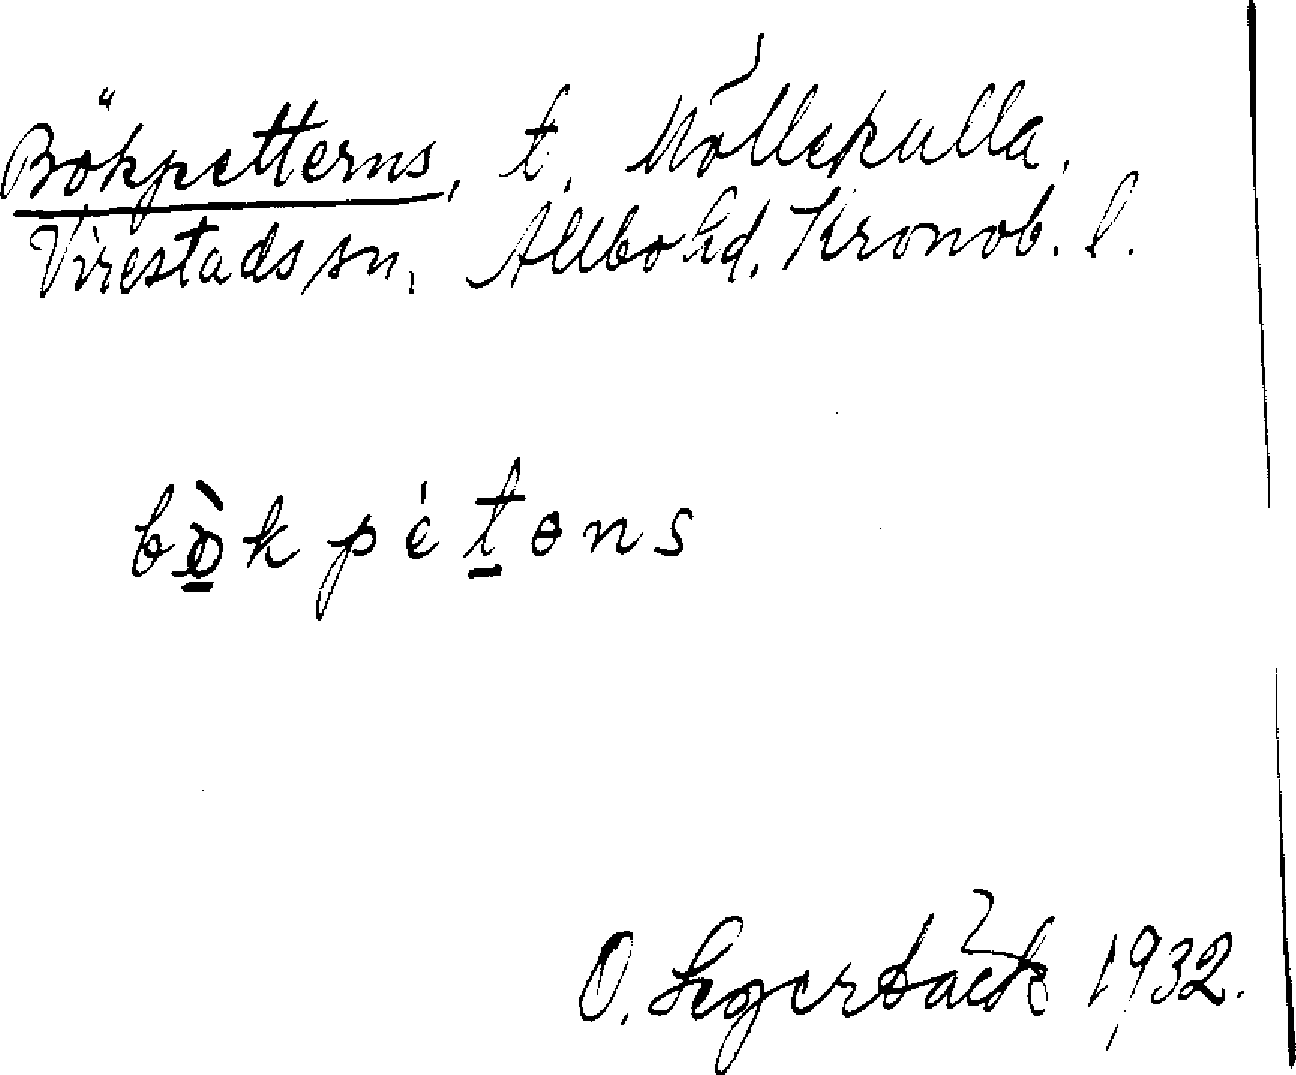 Bökpetterns, t. Möllekulla,
Virestads sn, Allbo hd, Kronob. l.
bö̀k pétəns
O. Segerbäck 1932.